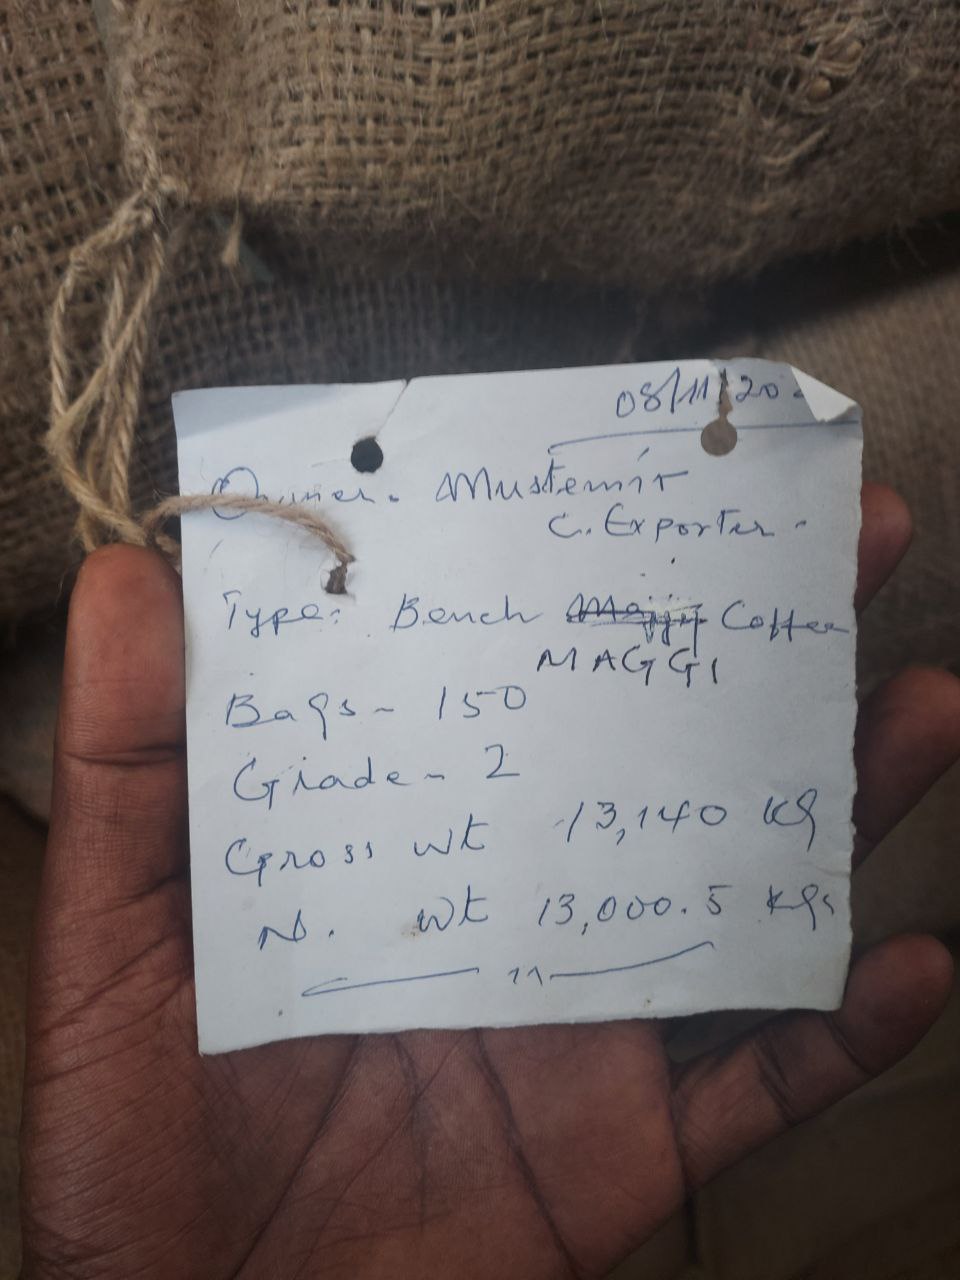 08/11/20
Owner. Mustemir
C. Exporter -
Type: Bench Coffee
MAGGI
Bags - 150
Grade - 2
Gross wt 13,140 Kg
N. wt 13,000.5 Kgs